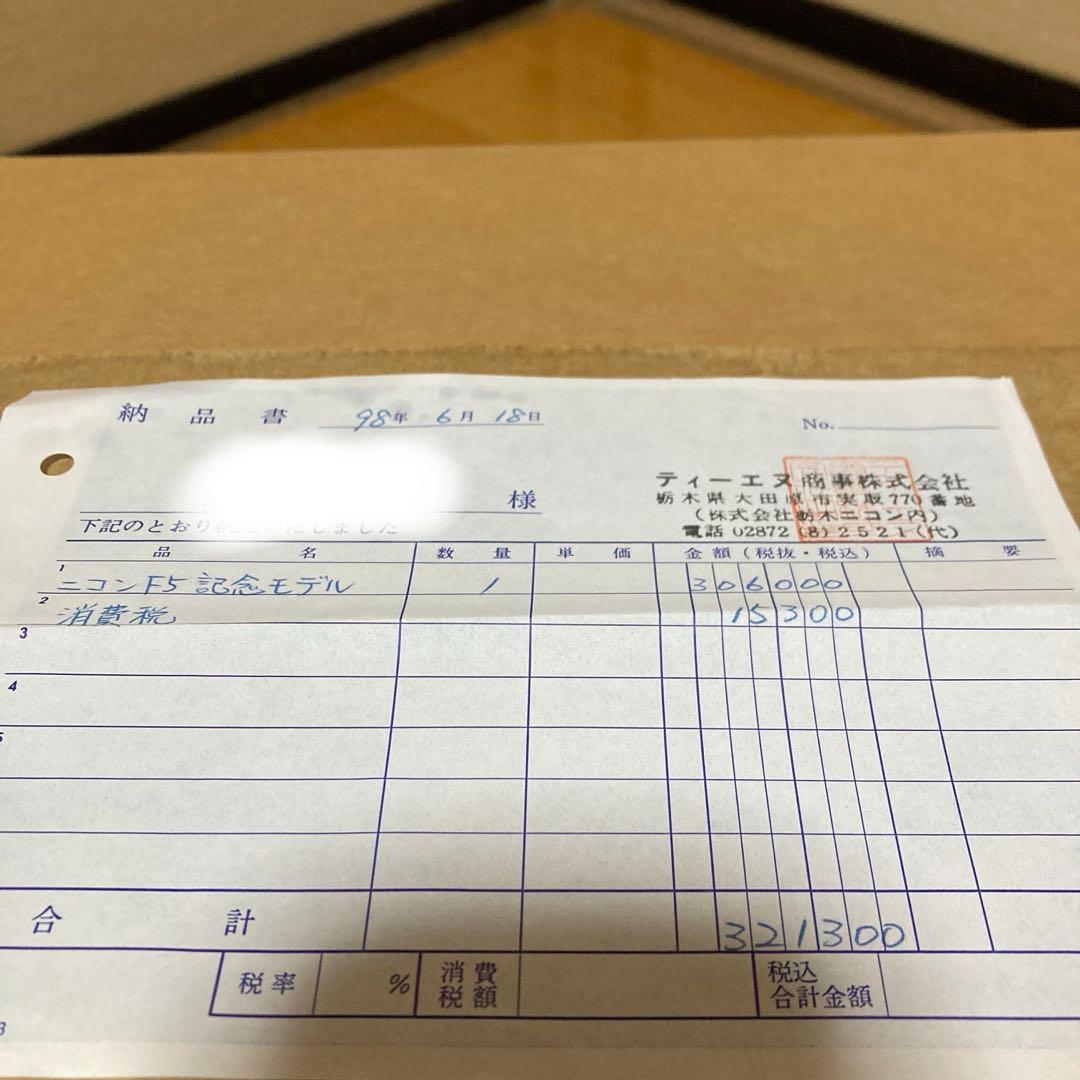 納品書 98年 6月 18日
No.
様
ティーエヌ商事株式会社
栃木県大田原市実取770番地
(株式会社栃木ニコン内)
電話 02872 (8) 2521 (代)
下記のとおり いたしました
品名 数量 単価 金額(税抜・税込) 摘要
1 ニコンF5 記念モデル 1 306000
2 消費税 15300
3
4
5
合計 321300
税率 % 消費税額 税込合計金額